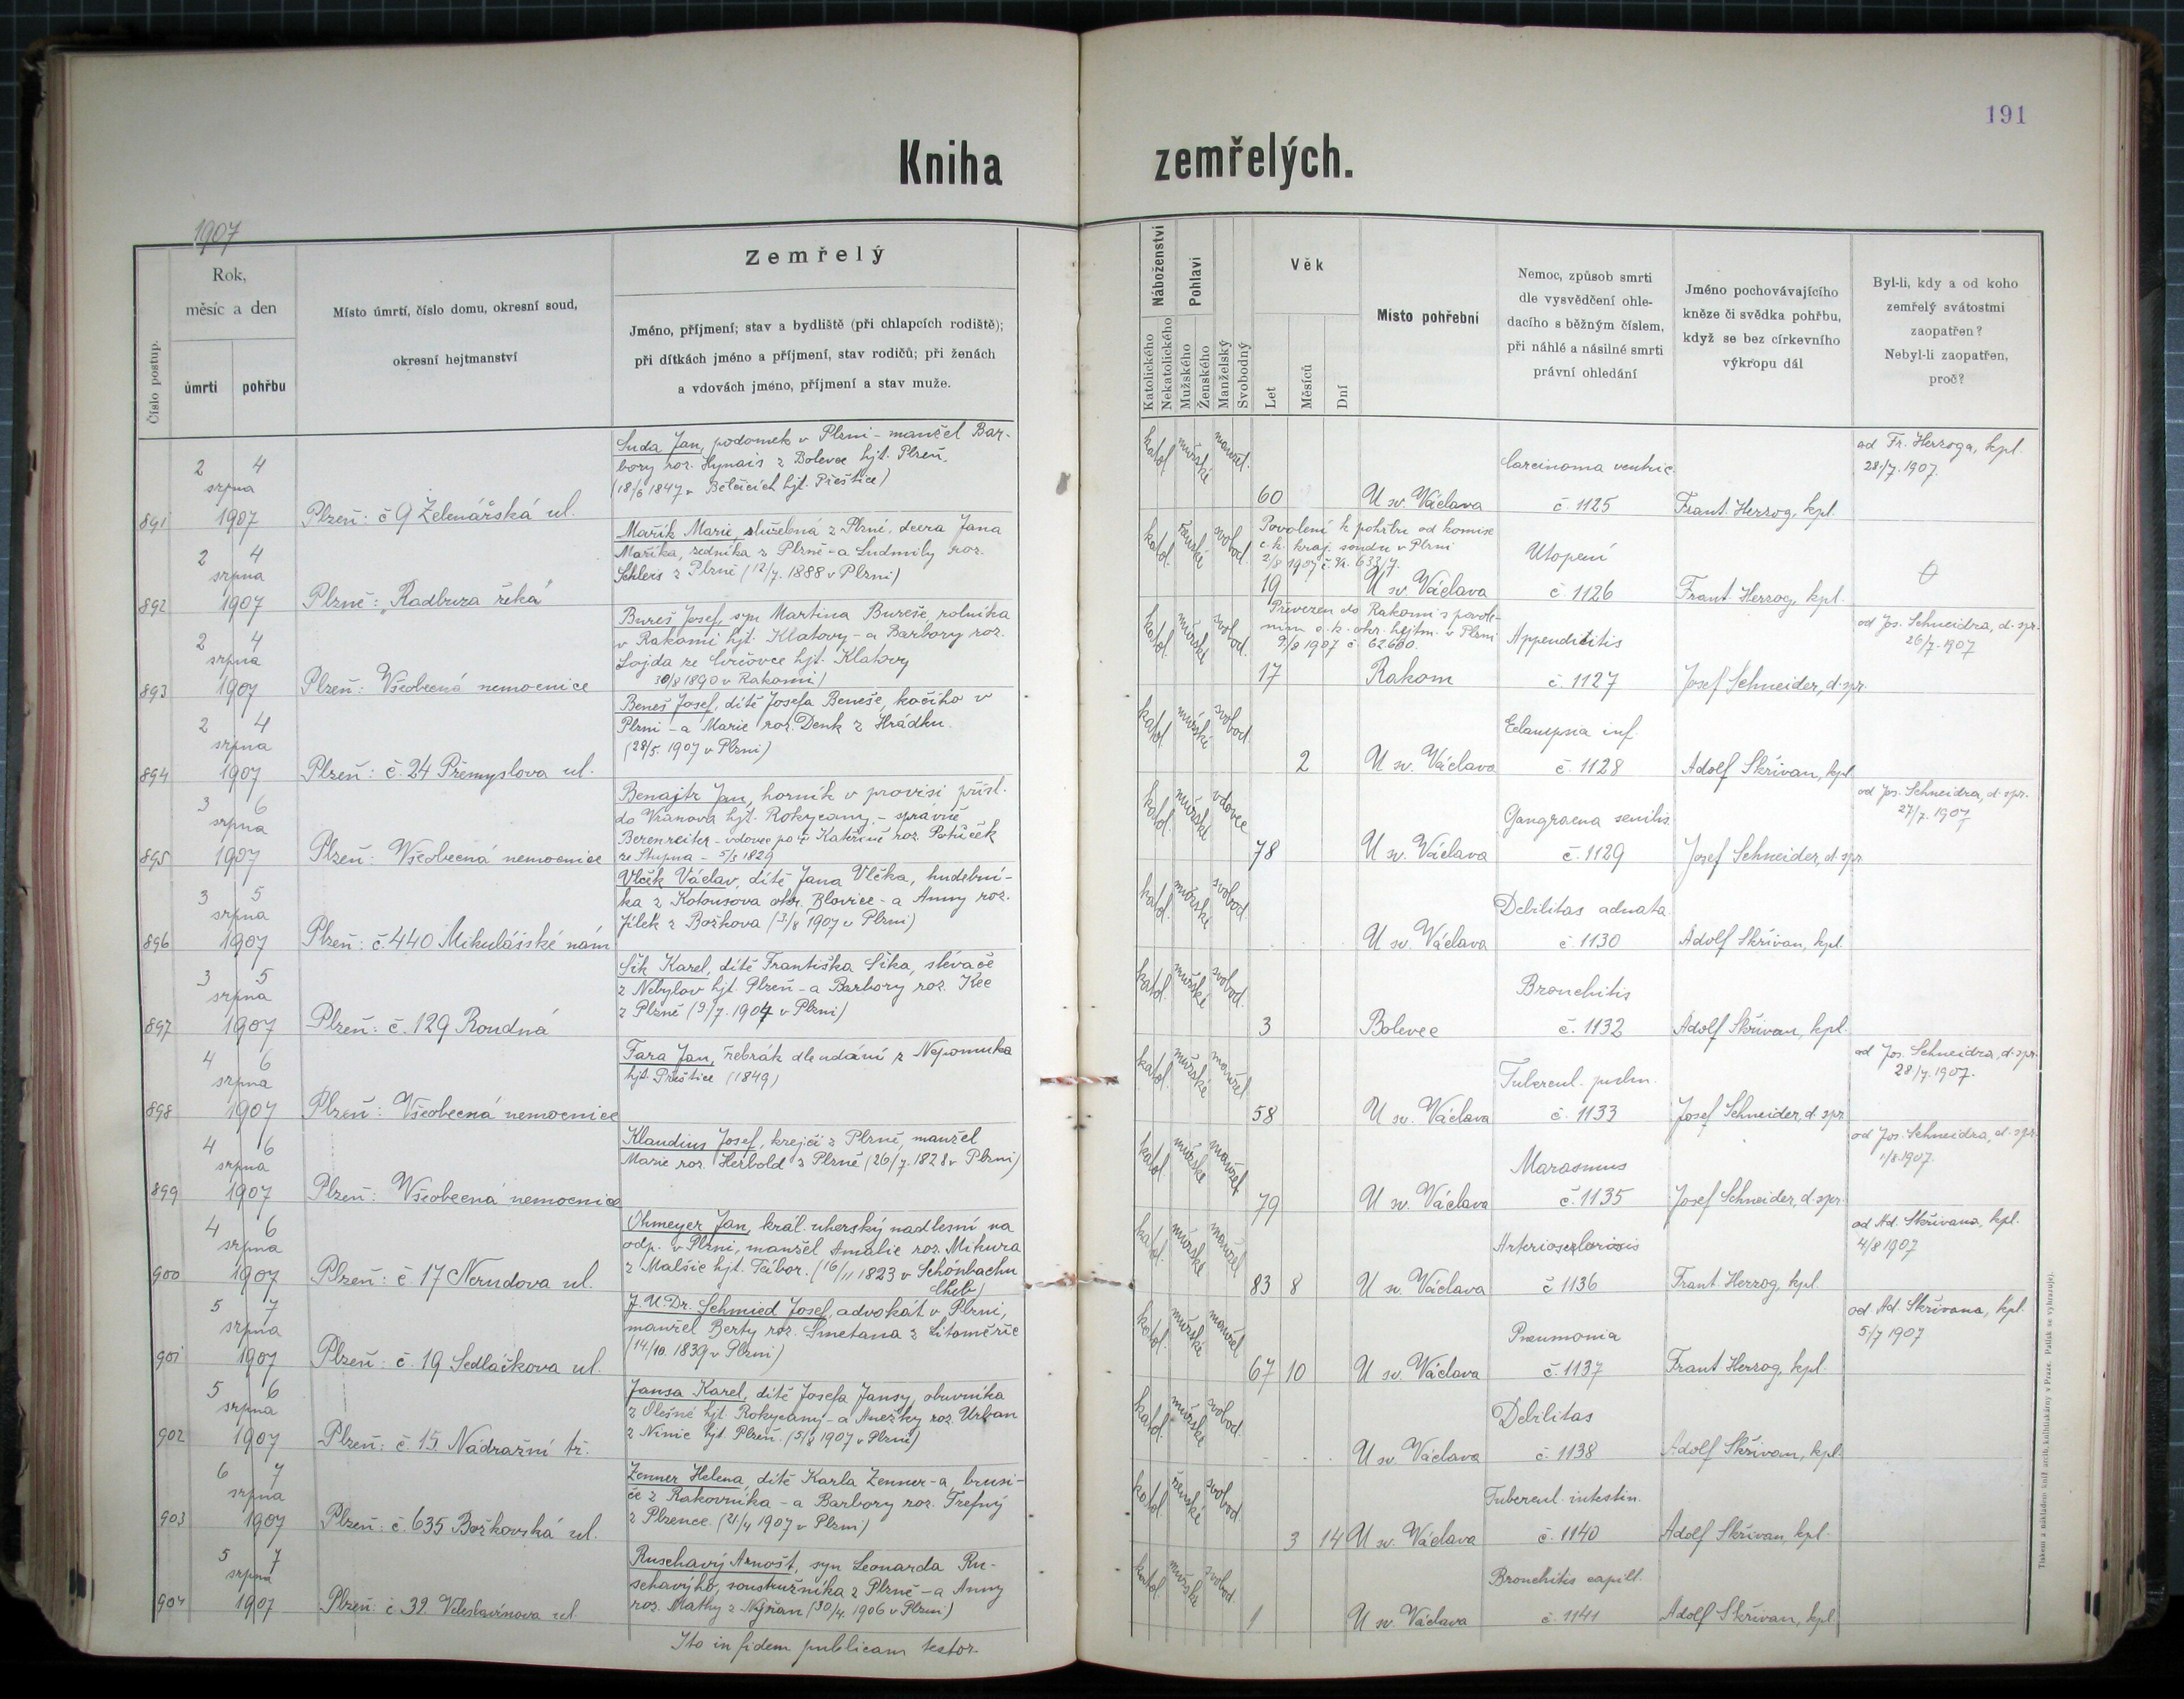 191
Kniha zemřelých.
1907
Číslo postup.
Rok,
měsíc a den
úmrtí
pohřbu
Místo úmrtí, číslo domu, okresní soud,
okresní hejtmanství
Zemřelý
Jméno, příjmení; stav a bydliště (při chlapcích rodiště);
při dítkách jméno a příjmení, stav rodičů; při ženách
a vdovách jméno, příjmení a stav muže.
Náboženství
Katolického
Nekatolického
Pohlaví
Mužského
Ženského
Manželský
Svobodný
Věk
Let
Měsíců
Dní
Místo pohřební
Nemoc, způsob smrti
dle vysvědčení ohle-
dacího s běžným číslem,
při náhlé a násilné smrti
právní ohledání
Jméno pochovávajícího
kněze či svědka pohřbu,
když se bez církevního
výkropu dál
Byl-li, kdy a od koho
zemřelý svátostmi
zaopatřen?
Nebyl-li zaopatřen,
proč?
891
2 4
srpna
1907
Plzeň: č 9 Želenářská ul.
Suda Jan, podomek v Plzni - manžel Bar-
bory roz. Hynais z Bolevce hjt. Plzeň.
(18/6 1847 v hjt. Přeštice)
katol. mužské manžel.
60
U sv. Václava
Carcinoma ventric.
č. 1125
Frant. Herzog, kpl.
od Fr. Herzoga, kpl.
28/7. 1907.
892
2 4
srpna
1907
Plzně: "Radbuza řeka"
Mařík Marie, služebná z Plzně, dcera Jana
Maříka, zedníka z Plzně - a Ludmily roz.
Schleis z Plzně (12/7. 1888 v Plzni)
katol. ženské svobod.
Povolení k pohřbu od komise
c. k. kraj. soudu v Plzni
2/8 1907 č. 633/7.
19
U sv. Václava
Utopení
č. 1126
Frant. Herzog, kpl.
893
2 4
srpna
1907
Plzeň: Všeobecná nemocnice
Bureš Josef, syn Martina Bureše, rolníka
v Rakomi hjt. Klatovy - a Barbory roz.
Lojda ze hjt. Klatovy
30/8 1890 v Rakomi)
katol. mužské svobod.
Převezen do Rakomi s povole-
ním c. k. okr. hejtm. v Plzni
1907 č. 62.600.
17
Rakom
Appendicitis
č. 1127
Josef Schneider, d. spr.
od Jos. Schneidra, d. spr.
26/7. 1907
894
2 4
srpna
1907
Plzeň: č. 24 Přemyslova ul.
Beneš Josef, dítě Josefa Beneše, kočího v
Plzni - a Marie roz. Denk z Hrádku.
(28/5. 1907 v Plzni)
katol. mužské svobod.
2
U sv. Václava
Eclampsia inf.
č. 1128
Adolf Skřivan, kpl.
895
3 6
srpna
1907
Plzeň: Všeobecná nemocnice
Benajtr Jan, horník v provisi přísl.
do Vranova hjt. Rokycany, - správně
Berenreiter - vdovec po Kateřině roz. Potůček
ze Stupna - 5/5 1829
katol. mužské vdovec
78
U sv. Václava
Gangraena senilis
č. 1129
Josef Schneider, d. spr.
od Jos. Schneidra, d. spr.
27/7. 1907
896
3 5
srpna
1907
Plzeň: č. 440 Mikulášské nám.
Vlček Václav, dítě Jana Vlčka, hudební-
ka z Kotousova okr. Blovice - a Anny roz.
Jílek z Božkova (3/8 1907 v Plzni)
katol. mužské svobod.
U sv. Václava
Debilitas adnata
č. 1130
Adolf Skřivan, kpl.
897
3 5
srpna
1907
Plzeň: č. 129 Roudná
Šik Karel, dítě Františka Šika, slévače
z Nebylov hjt. Plzeň - a Barbory roz. Kec
z Plzně (9/7. 1904 v Plzni)
katol. mužské svobod.
3
Bolevec
Bronchitis
č. 1132
Adolf Skřivan, kpl.
898
4 6
srpna
1907
Plzeň: Všeobecná nemocnice
Fara Jan, žebrák dle udání z Nepomuka
hjt. Přeštice (1849)
katol. mužské manžel
58
U sv. Václava
Tubercul. pulm.
č. 1133
Josef Schneider, d. spr.
od Jos. Schneidra, d. spr.
28/7. 1907.
899
4 6
srpna
1907
Plzeň: Všeobecná nemocnice
Klaudius Josef, krejčí z Plzně, manžel
Marie roz. Herbold z Plzně (26/7. 1828 v Plzni)
katol. mužské manžel
79
U sv. Václava
Marasmus
č. 1135
Josef Schneider, d. spr.
od Jos. Schneidra, d. spr.
1/8 1907.
900
4 6
srpna
1907
Plzeň: č. 17 Nerudova ul.
Ohmeyer Jan, král. uherský nadlesní na
odp. v Plzni, manžel Amalie roz. Mikura
z Malšic hjt. Tábor. (16/11 1823 v Schönbachu
Cheb)
katol. mužské manžel
83 8
U sv. Václava
Arteriosclerosis
č 1136
Frant. Herzog, kpl.
od Ad. Skřivana, kpl.
4/8 1907
901
5 7
srpna
1907
Plzeň: č. 19 Sedláčkova ul.
J. U. Dr. Schmied Josef, advokát v Plzni,
manžel Berty roz. Smetana z Litoměřic
(14/10. 1839 v Plzni)
katol. mužské manžel
67 10
U sv. Václava
Pneumonia
č. 1137
Frant Herzog, kpl.
od Ad. Skřivana, kpl.
5/7 1907
902
5 6
srpna
1907
Plzeň: č. 15 Nádražní tř.
Jansa Karel, dítě Josefa Jansy, obuvníka
z Olešné hjt. Rokycany - a Anežky roz. Urban
z Ninic hjt. Plzeň. (5/8 1907 v Plzni)
katol. mužské svobod.
U sv. Václava
Debilitas
č. 1138
Adolf Skřivan, kpl.
903
6 7
srpna
1907
Plzeň: č. 635 Božkovská ul.
Zenner Helena, dítě Karla Zenner-a, brusi-
če z Rakovníka - a Barbory roz. Trefný
z Plzence. (21/4 1907 v Plzni)
katol. ženské svobod.
3 14
U sv. Václava
Tubercul. intestin.
č. 1140
Adolf Skřivan, kpl.
904
5 7
srpna
1907
Plzeň: č. 39. Veleslavínova ul.
Ruschavý Arnošt, syn Leonarda Ru-
schavýho, soustružníka z Plzně - a Anny
roz. Mathy z Nýřan (30/4. 1906 v Plzni)
katol. mužské svobod.
1
U sv. Václava
Bronchitis capill.
č. 1141
Adolf Skřivan, kpl.
Ito in fidem publicam testor.